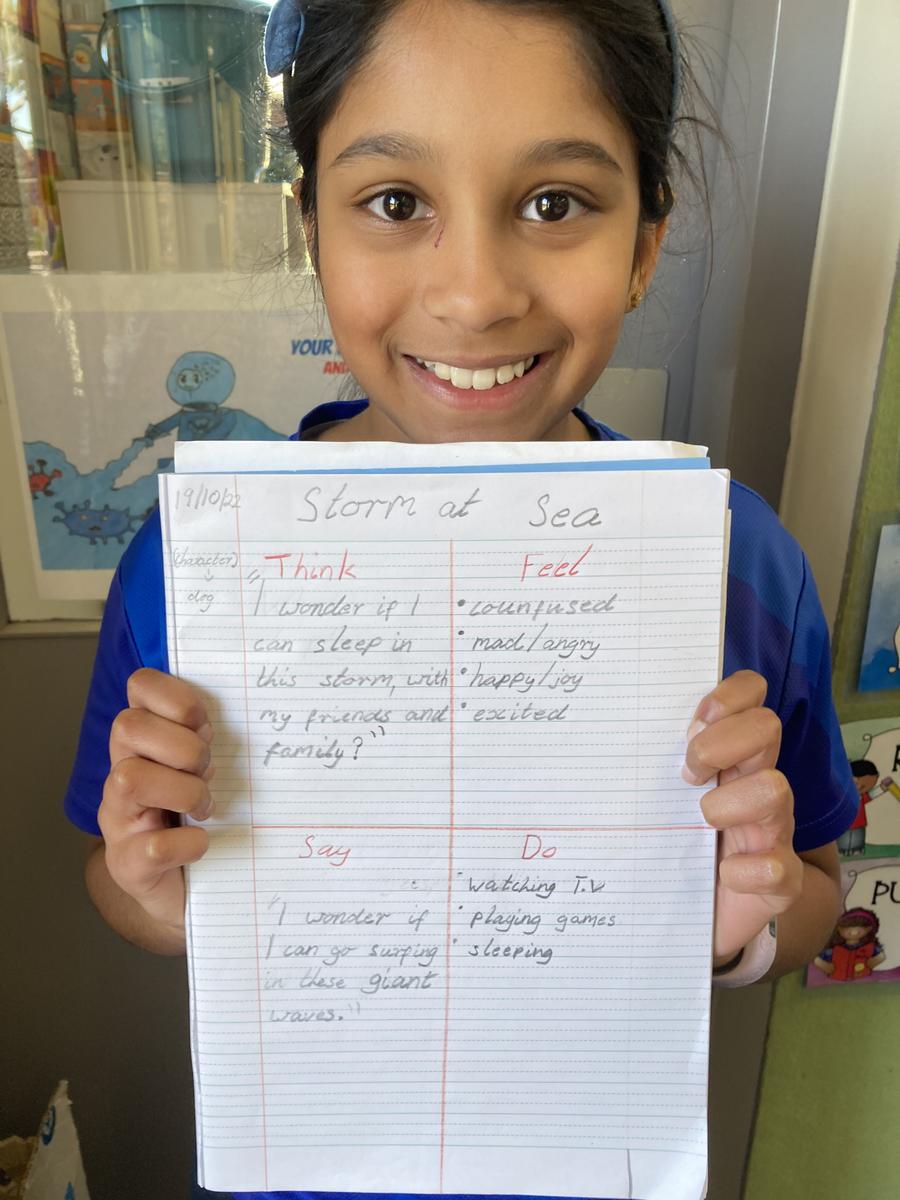 YOUR
19/10/22
Storm at Sea
(character)
↓
dog
Think
"I wonder if I
can sleep in
this storm, with
my friends and
family?"
Feel
• counfused
• mad/angry
• happy/joy
• excited
Say
"I wonder if
I can go surfing
in these giant
waves."
Do
• watching T.V
• playing games
• sleeping
PU